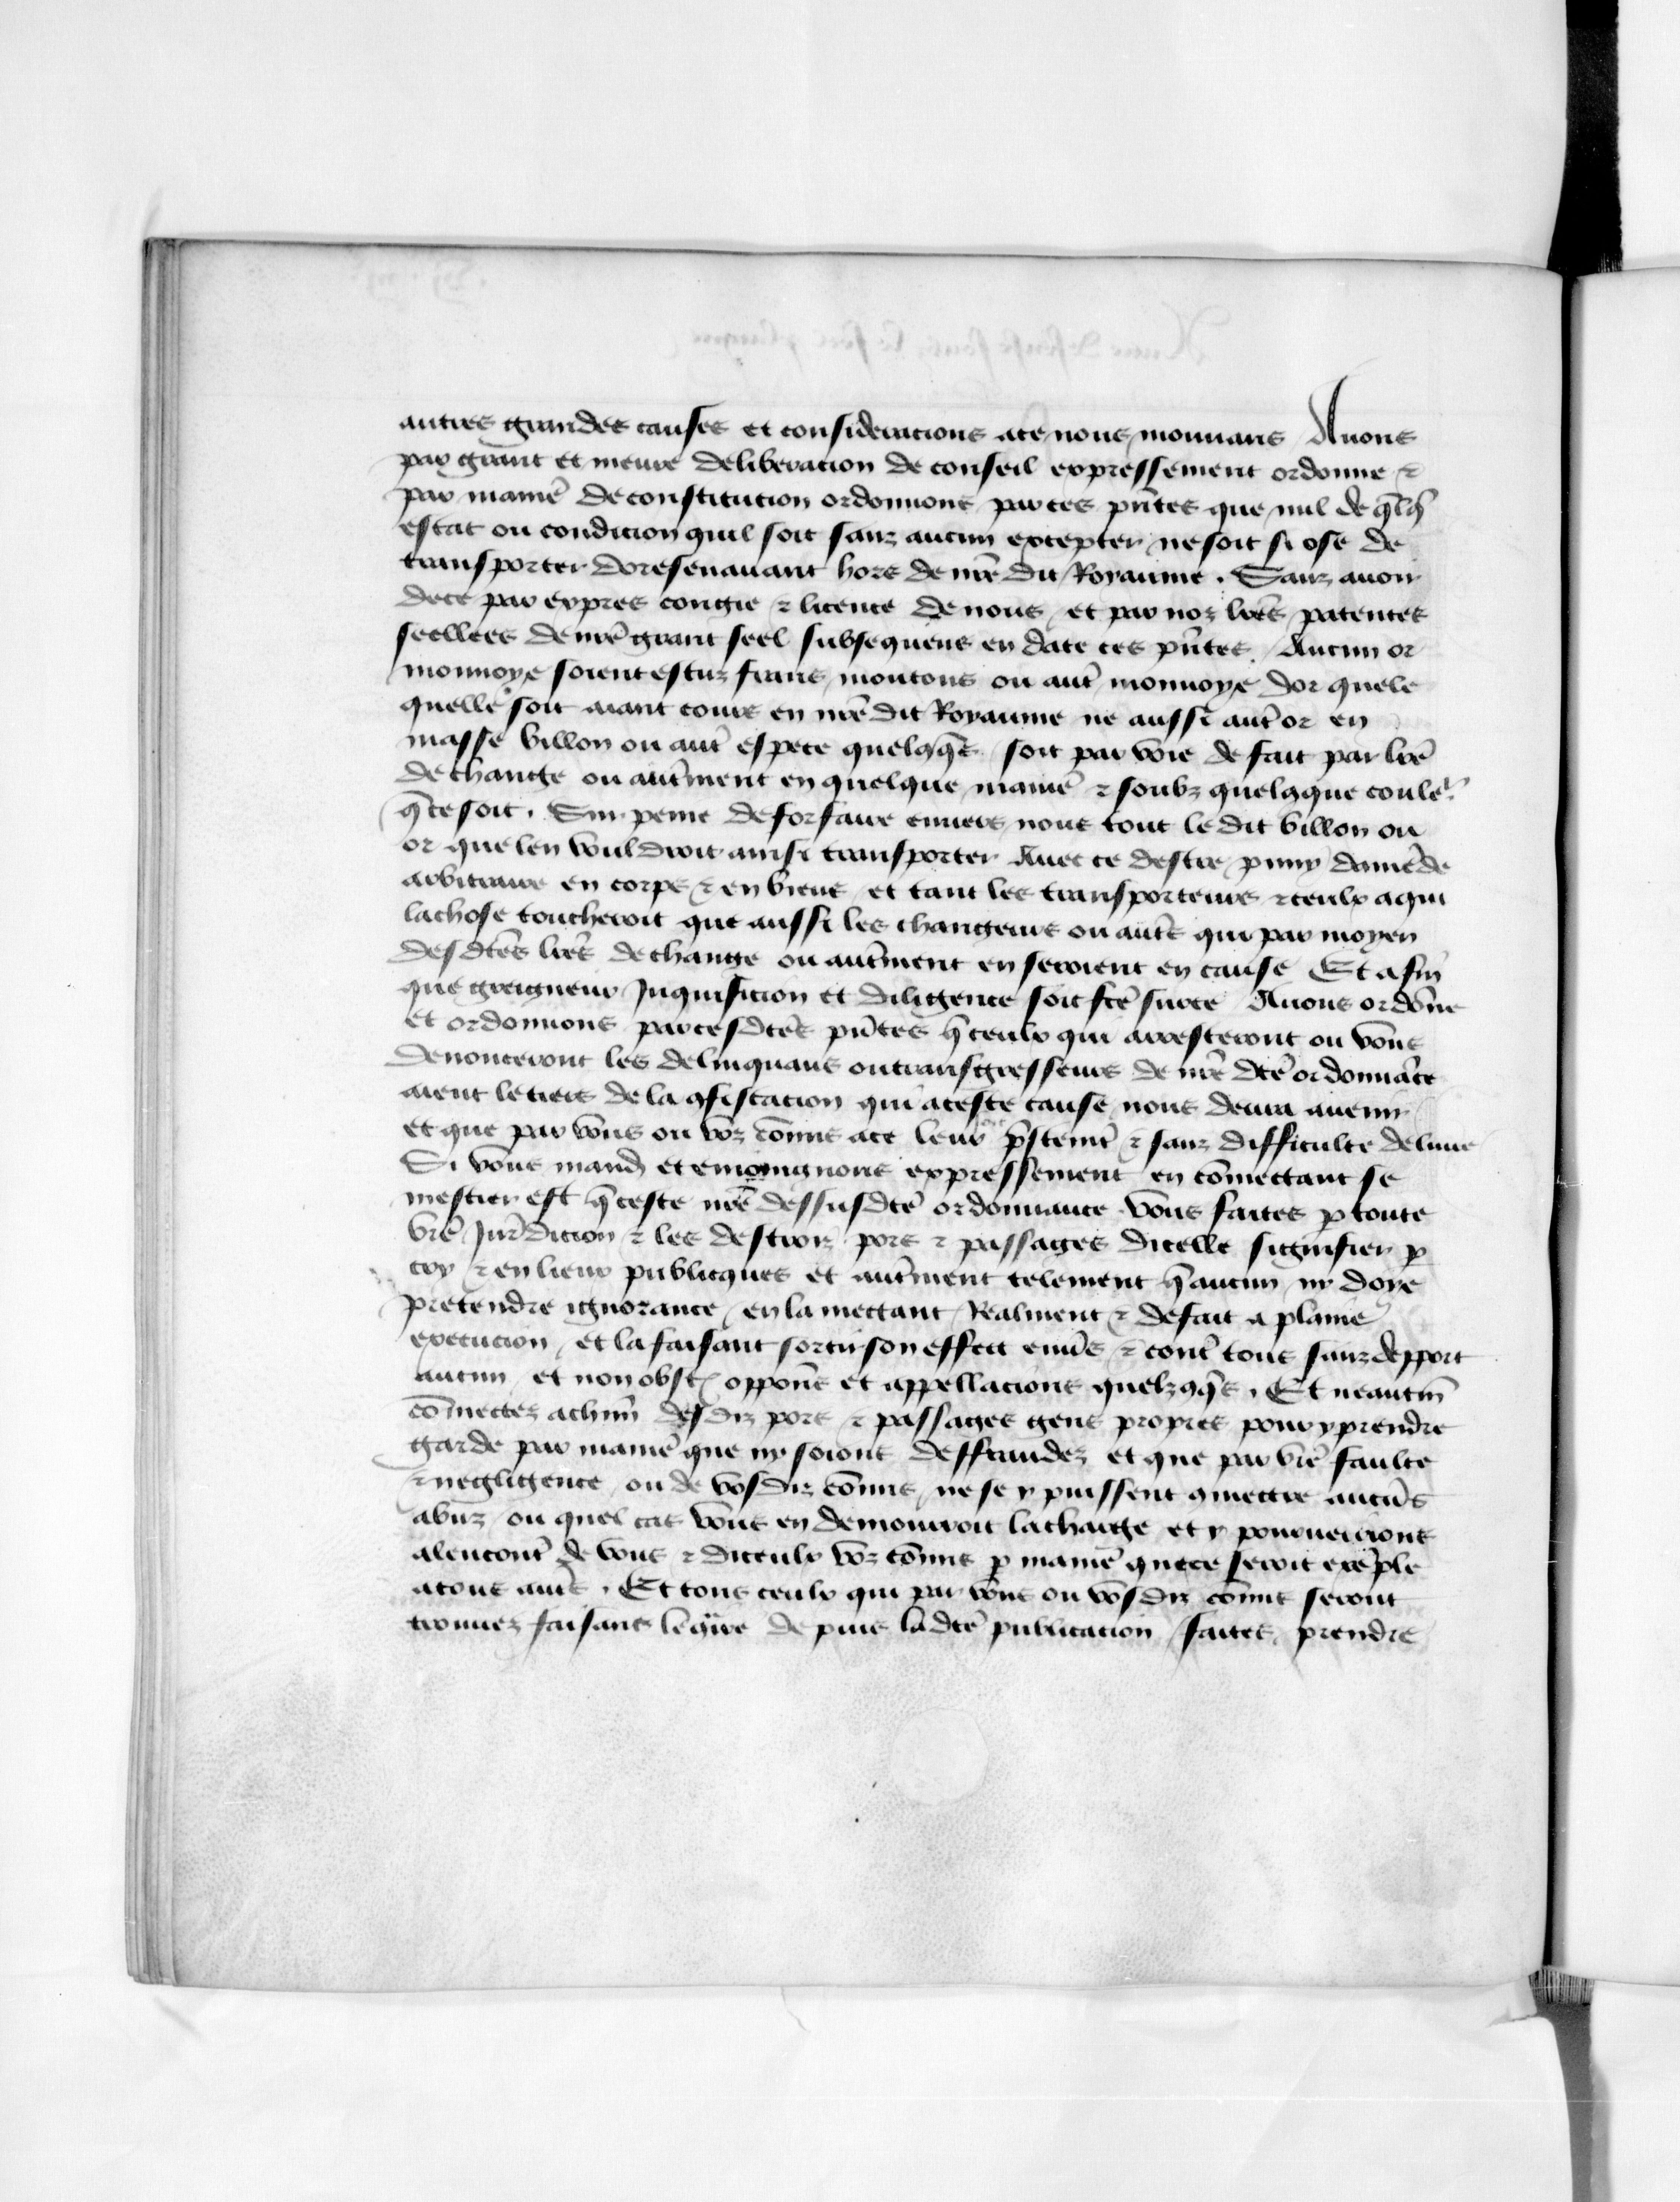 autres grandes causes et consideracions ace nous mouuans Auons
par grant et meure deliberacion de conseil expressement ordonne ⁊
par manie᷑ de constitucion ordonnons par ces pn̄tes que nul de q̄lq̄
estat ou condicion quil soit sanz aucun excepter ne soit si ose de
transporter doresenauant hors de nr̄e dit Royaume. Sanz auoir
de ce par expres congie ⁊ licence de nous et par noz lrēs patentes
seellees de nr̄e grant seel subsequens en date ces pn̄tes. Aucun or
monnoye soient escuz frans moutons ou aut̄ monnoye dor quele
quelle soit aiant cours en nr̄e dit Royaume ne aussi aut̄ or en
masse billon ou aut̄ espece quelcq̄ soit par voie de fait par lrē
de change ou aut̄ment en quelque manie᷑ ⁊ soubz quelzque couler
q̄ ce soit. Sur peine de forfaire enuers nous tout le dit billon ou
or que len vouldroit ainsi transporter Auec ce destre puny damēde
arbitraire en corps ⁊ en biens et tant les transporteurs ⁊ ceulx a qui
la chose toucheroit que aussi les changeurs ou aut̄s qui par moyen
desdc̄es lrēs de change ou aut̄ment en seroient en cause Et a fin
que greigneur Inquisicion et diligence soit fc̄e sur ce Auons ordōne
et ordonnons par cesdc̄es pn̄tes q̄ ceulx qui arresteront ou vous
denonceront les delinquans ou transgresseurs de nr̄e dc̄e ordonnāce
aient le tiers de la ꝯfiscacion qui a ceste cause nous deura auenir
et que par vous ou voz cōmis ace leur soit p̄stemt̄ ⁊ sanz difficulte deliure
Si vous mandōs et enioingnons expressement en cōmectant se
mestier est q̄ ceste nr̄e dessusdc̄e ordonnance vous faites p toute
vr̄e Jur̄dicion ⁊ les destroiz pors ⁊ passages dicelle signifier p
cry ⁊ en lieux publicques et aut̄ment telement q̄ aucun ny doye
pretendre ignorance en la mectant Realment ⁊ de fait a plaine
execucion et la faisant sortir son effect enūs ⁊ cont̄ tous sanz depport
aucun et non obst̄ oppōns et appellacions quelzcq̄s. Et neautm̄
cōmectez a chūn desdiz pors ⁊ passages gens propres pour y prendre
garde par manie᷑ que ny soions deffraudez et que par vr̄e faulte
⁊ negligence ou de vosdiz cōmis ne se y puissent ꝯmectre aucūs
abuz ou quel cas vous en demouroit la charge et y pouruerrions
alencont̄ de vous ⁊ diceulx voz cōmis p manie᷑ que ce seroit exēple
a tous aut̄s. Et tous ceulx qui par vous ou vosdiz cōmis seront
trouuez faisans le ꝯt̄re de puis ladc̄e publicacion faites prendre